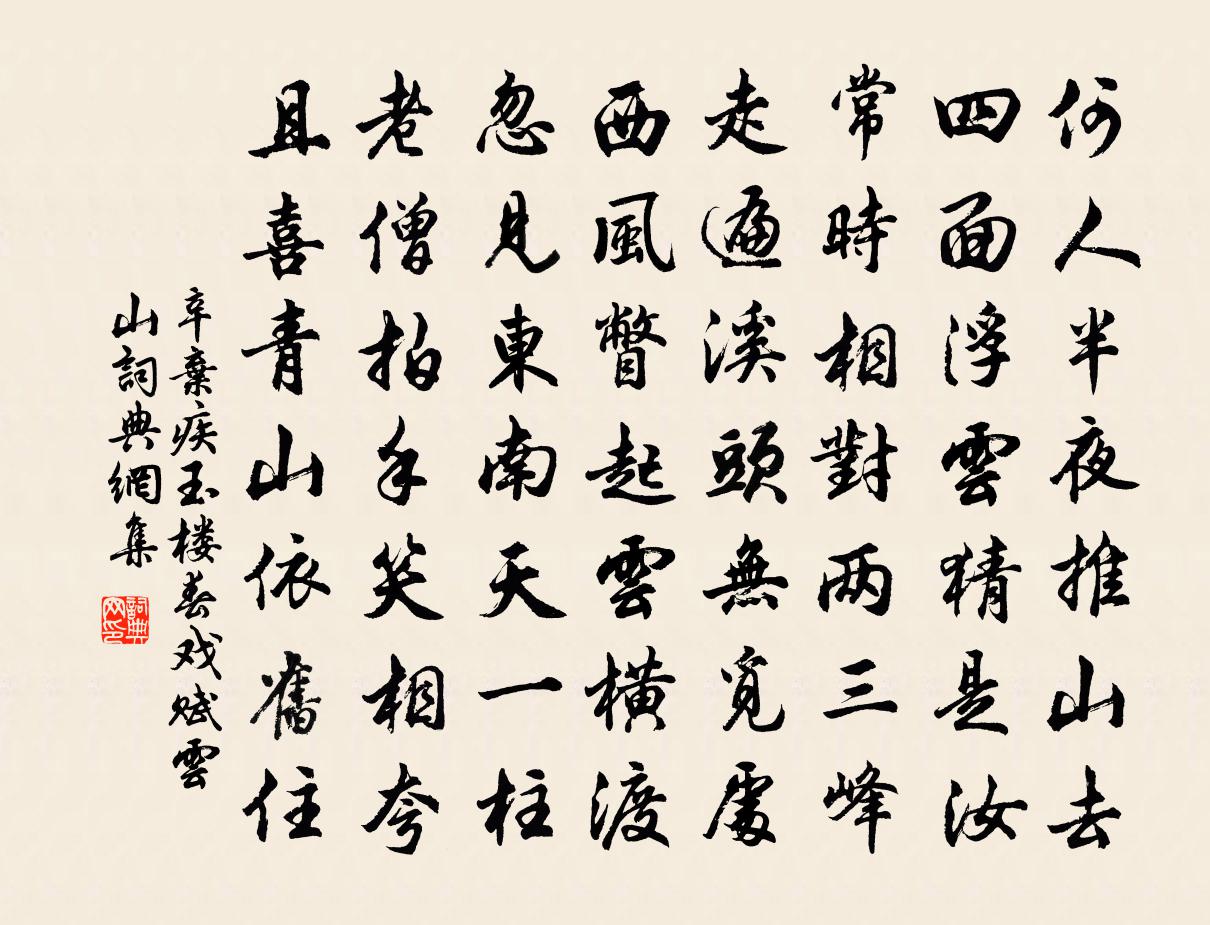 何人半夜推山去
四面浮雲猜是汝
常時相對两三峰
走遍溪頭無覓處
西風瞥起雲橫渡
忽見東南天一柱
老僧拍手笑相夸
且喜青山依舊住
辛棄疾玉楼春戏赋雲
山詞典網集
詞典网印